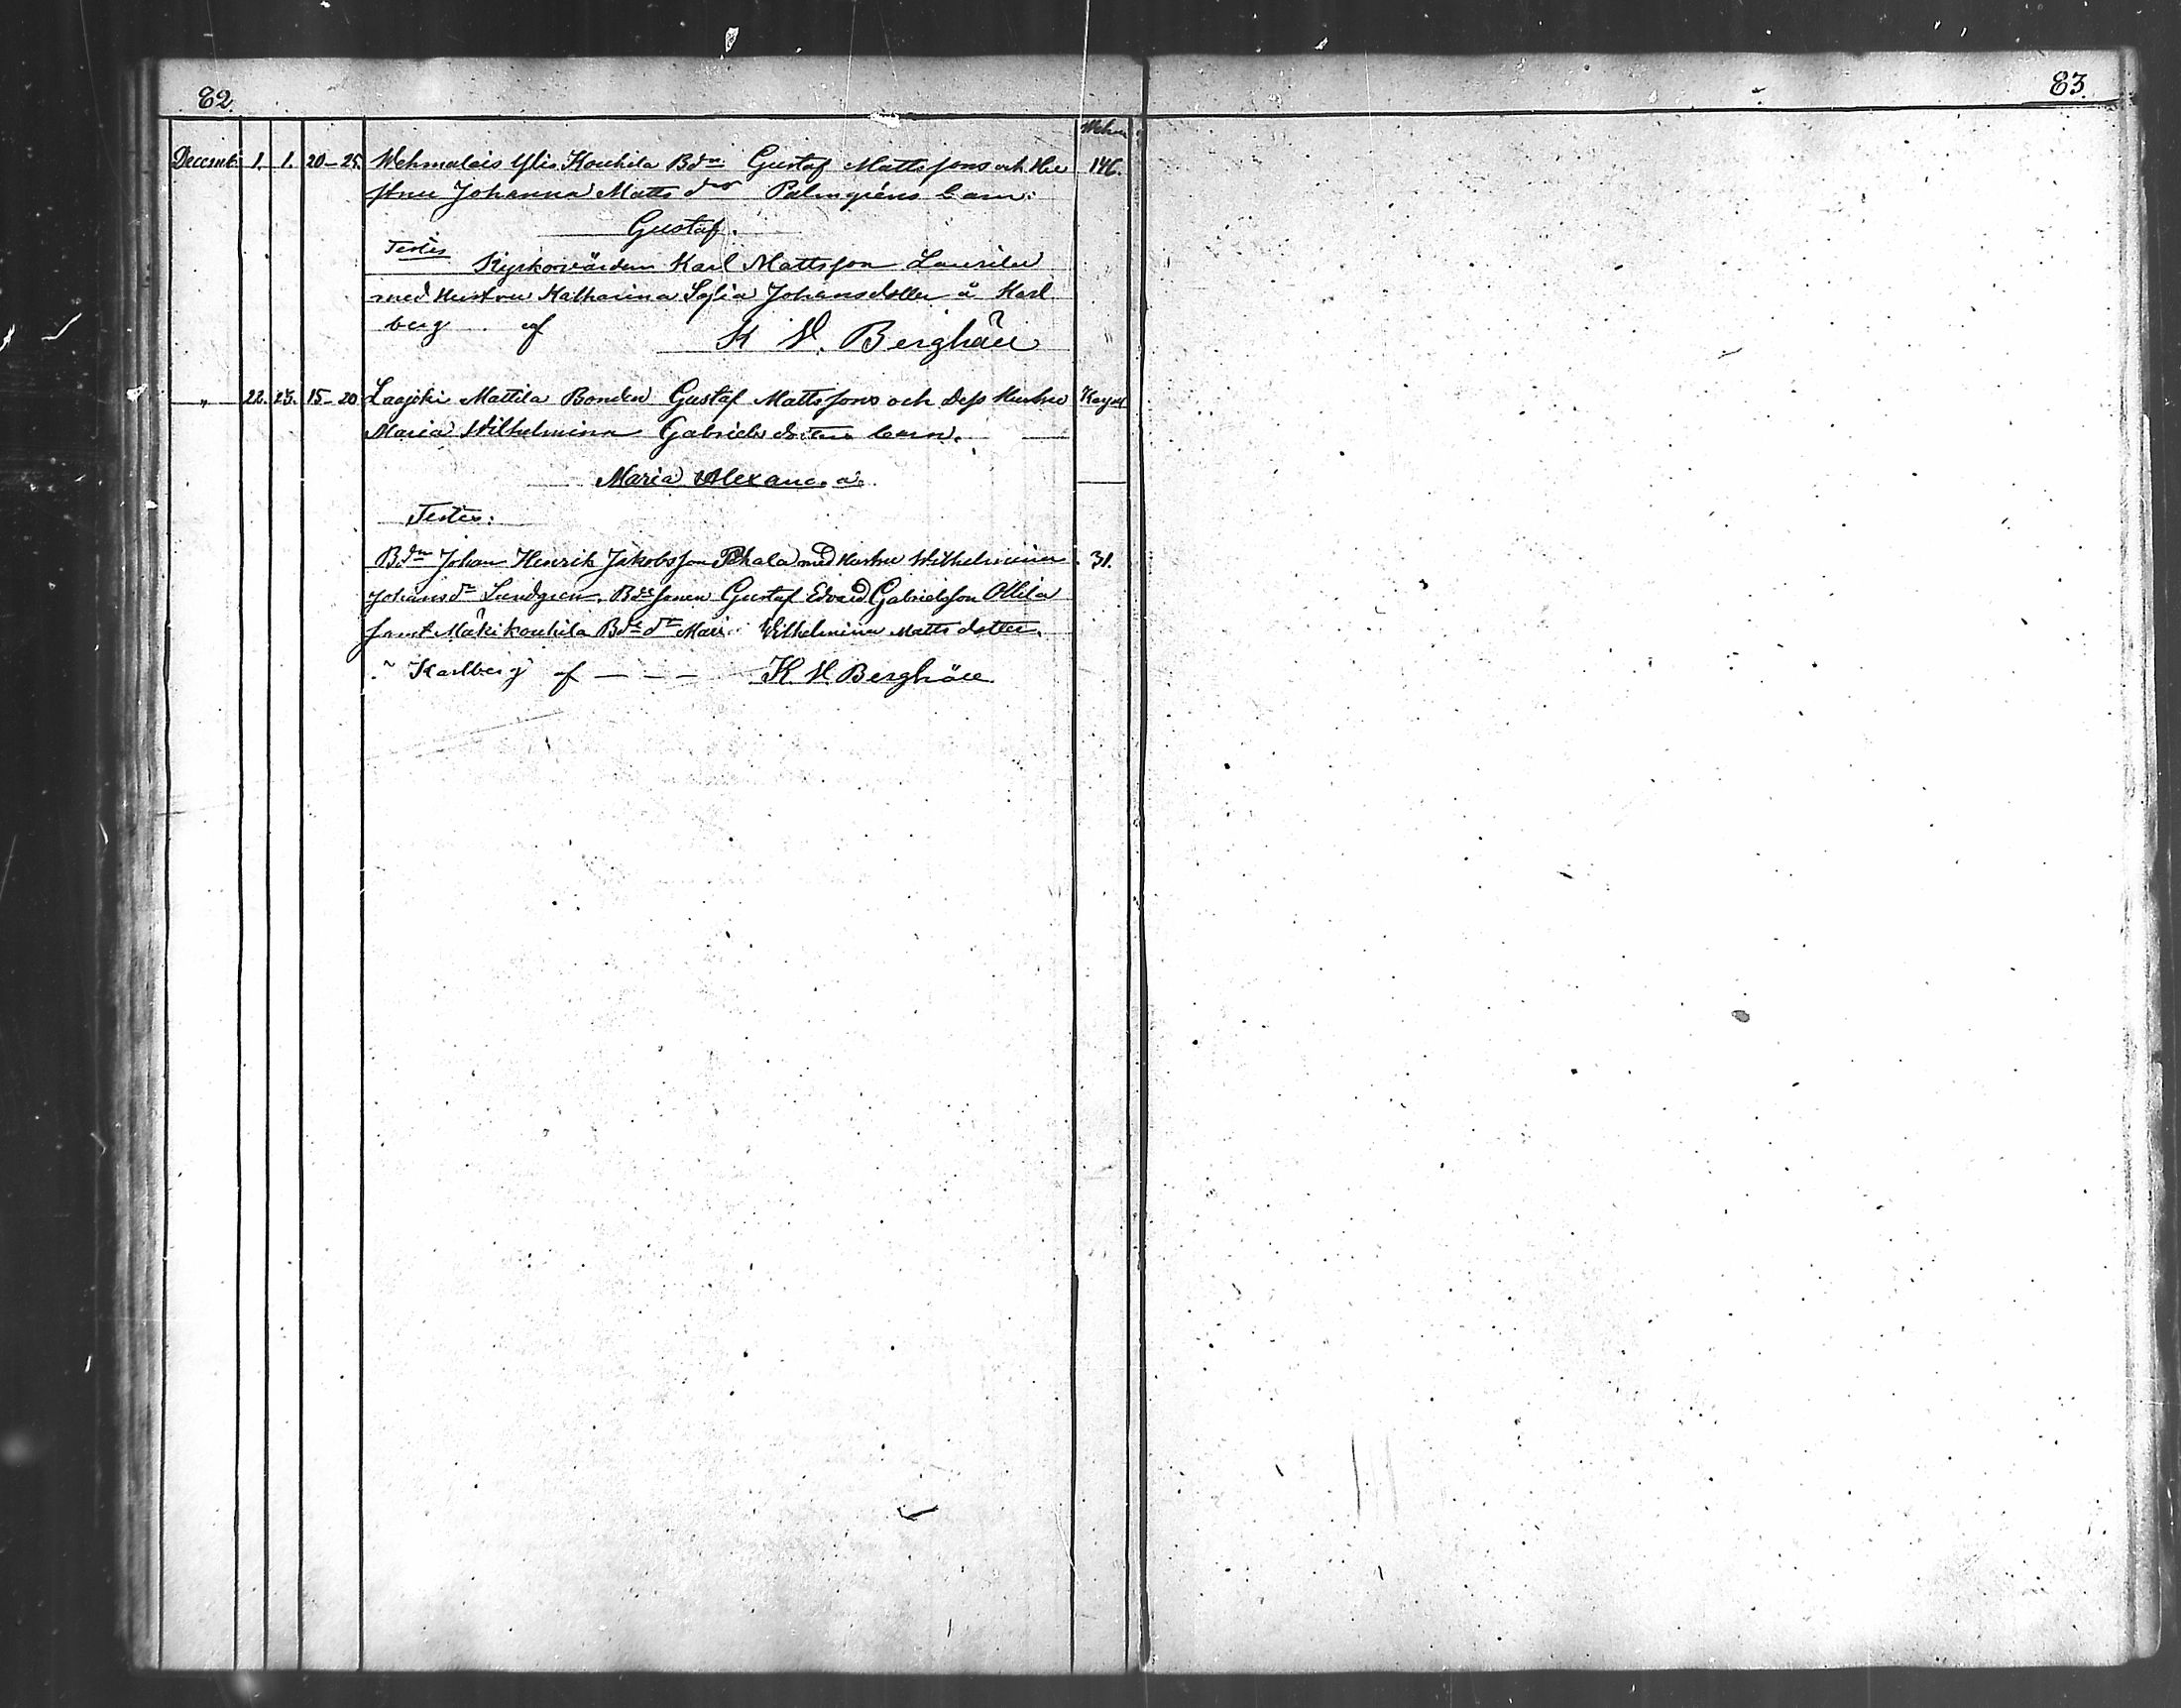 82.
83.
Wehm
Decemb. 1. 1. 20-25. Wehmalais Ylis Kouhila Bdn Gustaf Mattssons och Hu 146.
strus Johanna Matts drs Palmgréns barn:
Gustaf.
Testes
Kyrkovärden Karl Mattsson Laurila
med Hustru Katharina Sofia Johansdotter å Karl
berg af K V. Berghäll
" 22. 25. 15-20 Laajoki Mattila Bonden Gustaf Mattssons och dess Hustru
Maria Wilhelmina Gabrielsdotters barn.
Maria Alexandra
Testes:
Bdn Johan Henrik Jakobsson med Hustru Wilhelmina 31.
Johansdr Lundgren, Bdesonen Gustaf Edvard Gabrielsson Ollila
samt Mäkikouhila Bde dr Maria Wilhelmina Mattsdotter.
Karlberg af — — — K. V. Berghäll